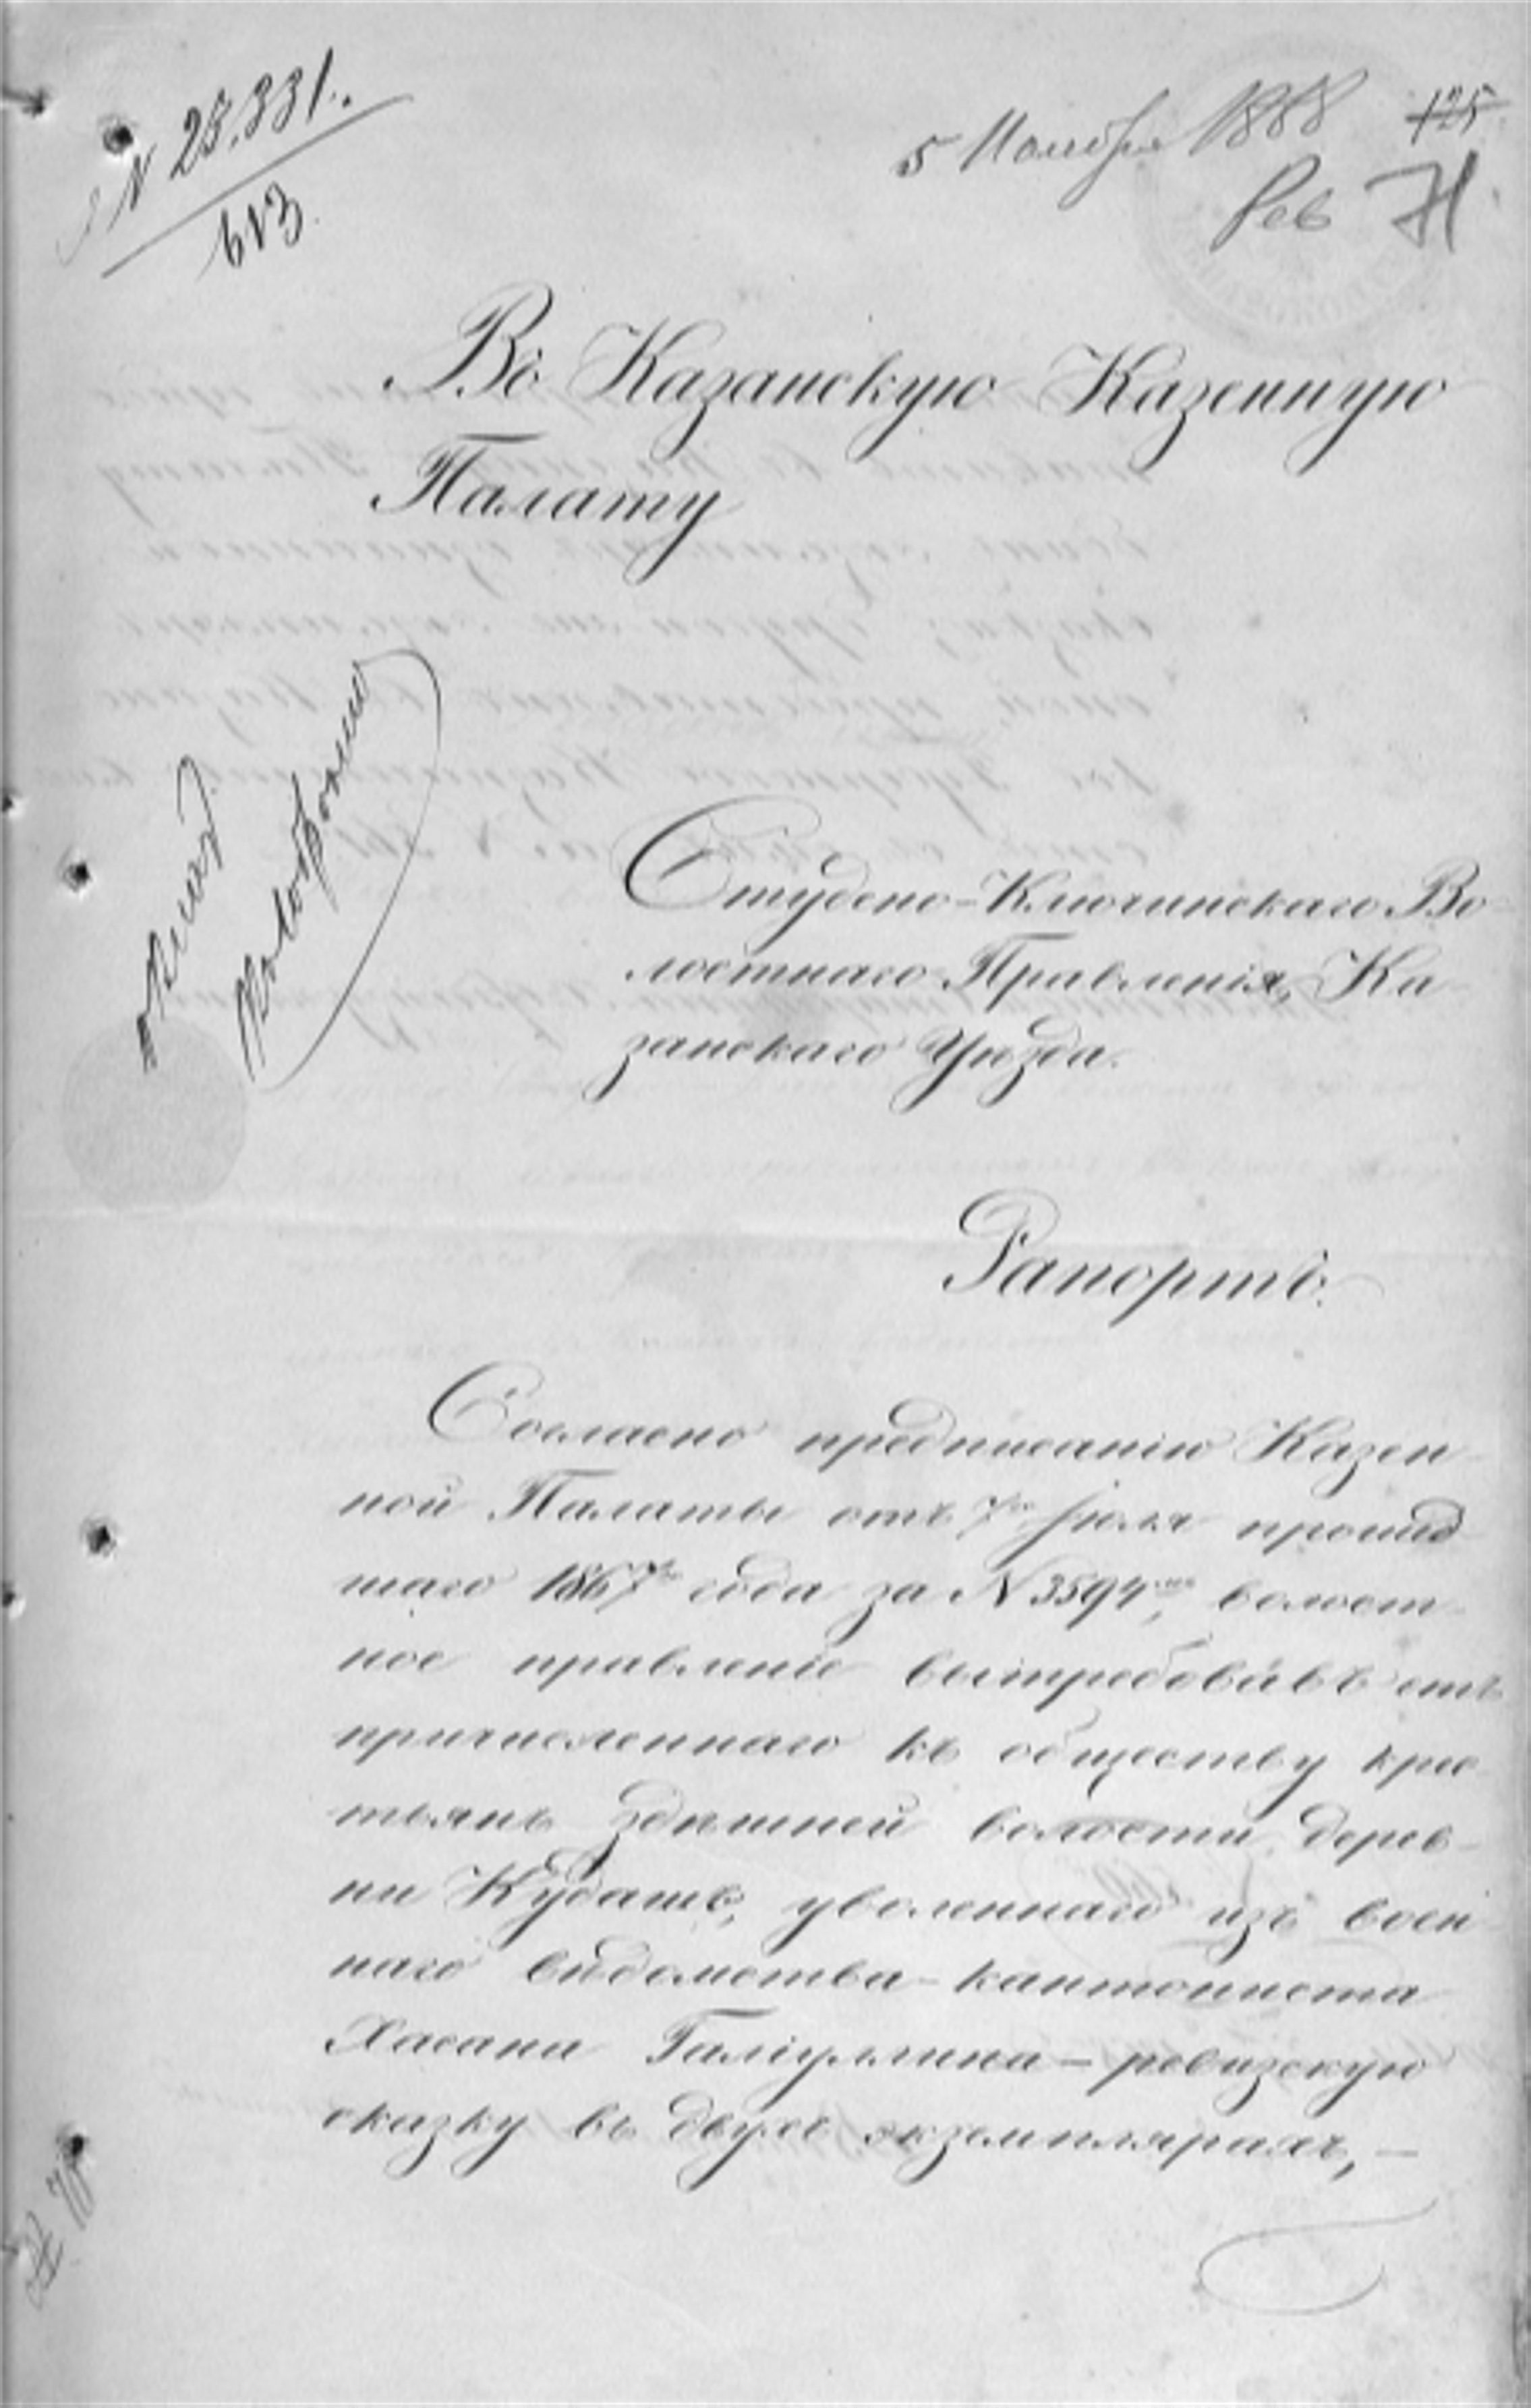 N 23.331.
613.
5 Ноября 1868 125
Рев
Въ Казанскую Казенную
Палату
Студено-Ключинскаго Во-
лостнаго Правленія, Ка
занскаго Уѣзда.
Рапортъ.
Согласно предписанію Казен
ной Палаты отъ 7го Іюля прошед
шаго 1867го года за N 3594мъ, волост-
ное правленіе вытребовавъ отъ
причисленнаго къ обществу крес
тьянъ здѣшней волости дерев-
ни Кудашъ, уволеннаго изъ воен
наго вѣдомства - кантониста
Хасана Галіуллина - ревизскую
сказку въ двухъ экземплярахъ, -